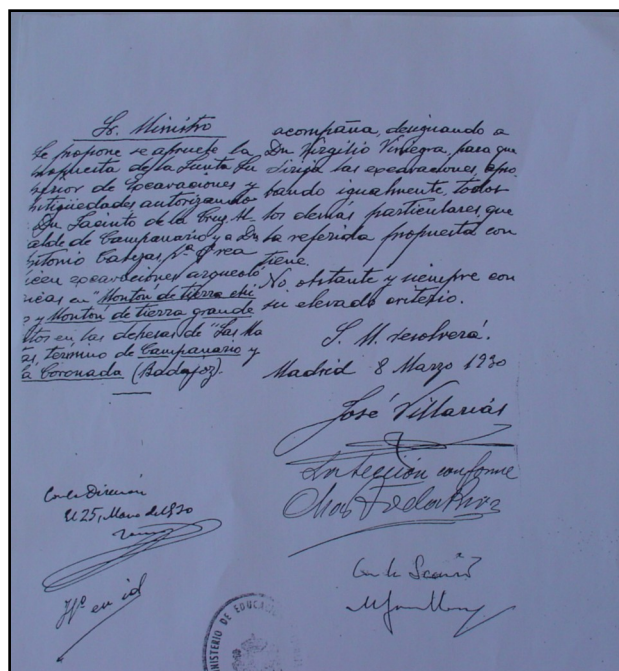 Sr. Ministro
Se propone se apruebe la
propuesta de la Junta Su
perior de Excavaciones y
Antigüedades autorizando
Dn. Jacinto de la Cruz, Al
calde de Campanario y a Dn
Antonio Cabezas, pª. qª rea
licen excavaciones arqueoló
gicas en "Montón de tierra chi
o y Montón de tierra grande
sitos en las dehesas de "Las Ma
as, término de Campanario y
La Coronada (Badajoz).
acompaña, designando a
Dn. Virgilio Viniegra, para que
dirija las excavaciones, apro
bando igualmente, todos
los demás particulares, que
la referida propuesta con
tiene.
No, obstante y siempre con
su elevado criterio.
S. M. resolverá.
Madrid 8 Marzo 1930
José Villarías
La Sección conforme
Con la Dirección
El 25, Marzo de 1930
Con la Sección
MINISTERIO DE EDUCA